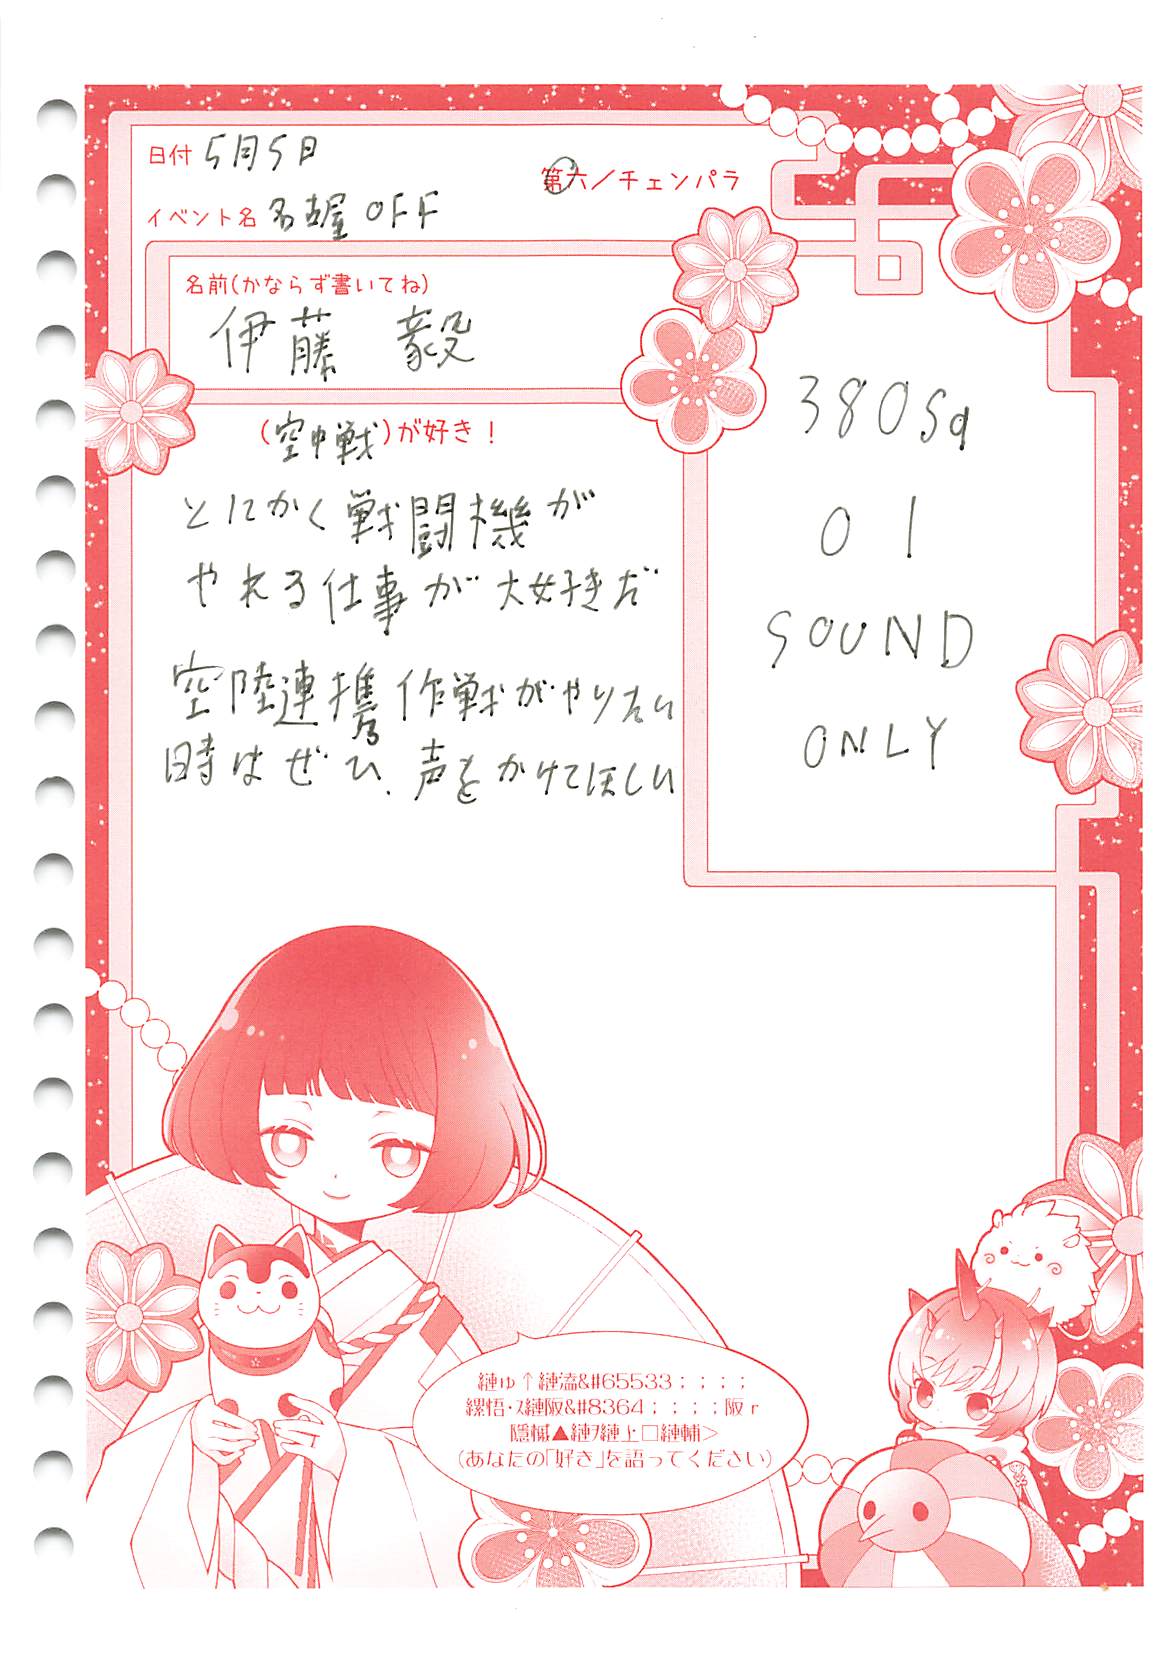 日付 5月5日
第六／チェンパラ
イベント名 名古屋 OFF
名前(かならず書いてね)
伊藤 毅
(空中戦)が好き！
とにかく戦闘機が
やれる仕事が大好きだ
空陸連携作戦がやりたい
時はぜひ、声をかけてほしい
380Sq
01
SOUND
ONLY
縺ゅ↑縺溘&#65533；；；；
縲悟・ｽ縺阪&#8364；；；；阪ｒ
隱槭▲縺ｦ縺上□縺輔＞
(あなたの「好き」を語ってください)